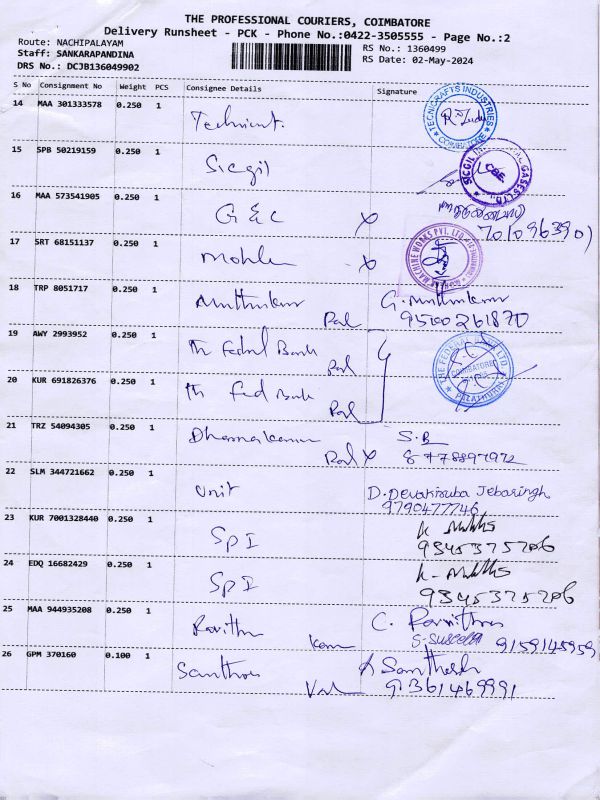 THE PROFESSIONAL COURIERS, COIMBATORE
Delivery Runsheet - PCK - Phone No.:0422-3505555 - Page No.:2
Route: NACHIPALAYAM
RS No.: 1360499
Staff: SANKARAPANDINA
RS Date: 02-May-2024
DRS No.: DCJB136049902
S No Consignment No Weight PCS Consignee Details Signature
14 MAA 301333578 0.250 1
TECNICRAFTS INDUSTRIES COIMBATORE
15 SPB 50219159 0.250 1 Sicgil
16 MAA 573541905 0.250 1 G & C x
17 SRT 68151137 0.250 1 x
MACHINE WORKS PVT. LTD.
18 TRP 8051717 0.250 1 Muthukumar Pal G. Muthukumar
9500261870
19 AWY 2993952 0.250 1 th Fedral Bank Pal
THE FEDERAL COIMBATORE
20 KUR 691826376 0.250 1 th Fed Bank Pal
21 TRZ 54094305 0.250 1 Pal x S.B
22 SLM 344721662 0.250 1 Unit D. Devakiruba Jebasingh
9790477746
23 KUR 7001328440 0.250 1 SPI
9345375206
24 EDQ 16682429 0.250 1 SPI
9345375206
25 MAA 944935208 0.250 1 Pavithra C. Pavithra
9159145959
26 GPM 370160 0.100 1 Santhosh Santhosh
9361469991